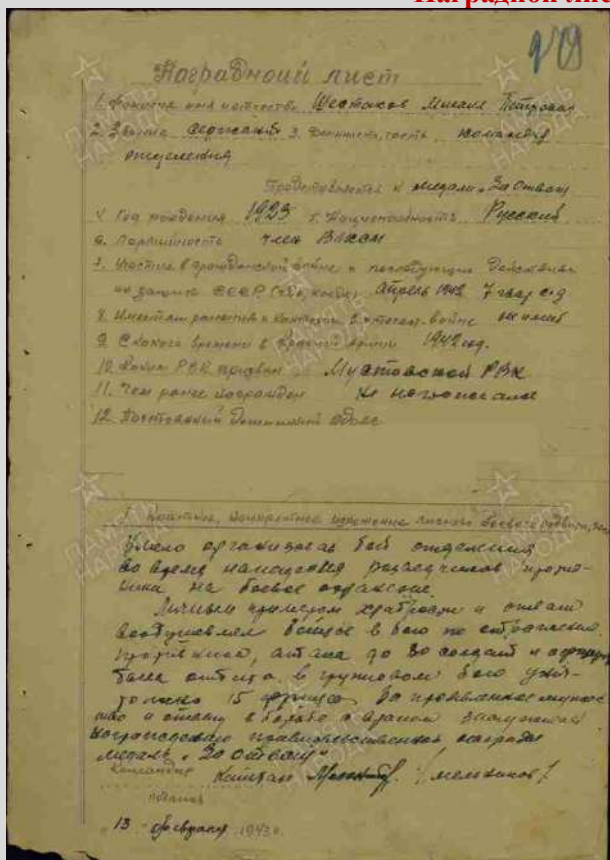 Наградной лис
Наградной лист
1. Фамилия имя и отчество Шестаков Михаил Петрович
2. Звание сержант 3. Должность, часть командир
отделения
Представляется к медали „За отвагу
4. Год рождения 1923 5. Национальность Русский
6. Партийность член ВЛКСМ
7. Участие в гражданской войне и последующих действиях
по защите СССР (где, когда) Апрель 1942 7 гвар с.д
8. Имеет ли ранения и контузии в отечест. войне не имеет
9. С какого времени в Красной Армии 1942 год.
10. Каким РВК призван РВК
11. Чем ранее награжден Не награждался
12. Постоянный домашний адрес
Краткое, конкретное изложение личного боевого подвига
Умело организовав бой отделения
во время нападения разведчиков против-
ника на боевое охранение.
Личным примером храбрости и отваги
воодушевлял бойцов в бою по отражению
противника, атака до 30 солдат и
была отбита. в групповом бою унич-
тожено 15 фрицев. За проявленное мужес-
тво и отвагу в борьбе с врагом
правительственной награды
медаль „За отвагу"
Командир Капитан /Мельников/
13 февраля 1943 г.
ПАМЯТЬ
НАРОДА